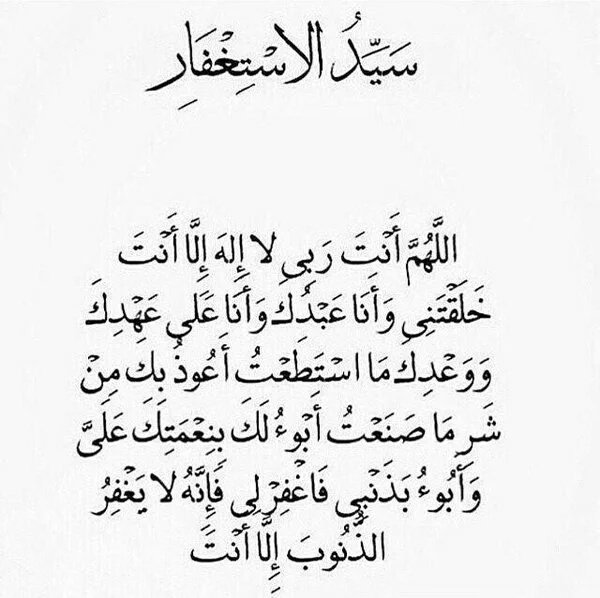 سَيِّدُ الاسْتِغْفَارِ
اللَّهُمَّ أَنْتَ رَبِي لا إِلهَ إِلَّا أَنْتَ
خَلَقْتَنِي وَأَنَا عَبْدُكَ وَأَنَا عَلى عَهْدِكَ
وَوَعْدِكَ مَا اسْتَطَعْتُ أَعُوذُ بِكَ مِنْ
شَرِ مَا صَنَعْتُ أَبُوءُ لَكَ بِنِعْمَتِكَ عَلَيَّ
وَأَبُوءُ بَذَنْبِي فَاغْفِرْ لِي فَإِنَّهُ لا يَغْفِرُ
الذُّنُوبَ إِلَّا أَنْتَ